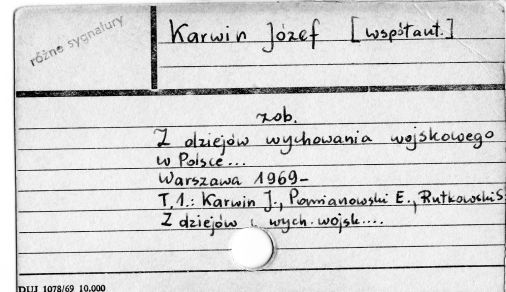 różne sygnatury
Karwin Józef [współaut.]
zob.
Z dziejów wychowania wojskowego
w Polsce...
Warszawa 1969-
T.1.: Karwin J., Pomianowski E., Rutkowski S.
Z dziejów i wych. wojsk....
DUJ 1078/69 10.000